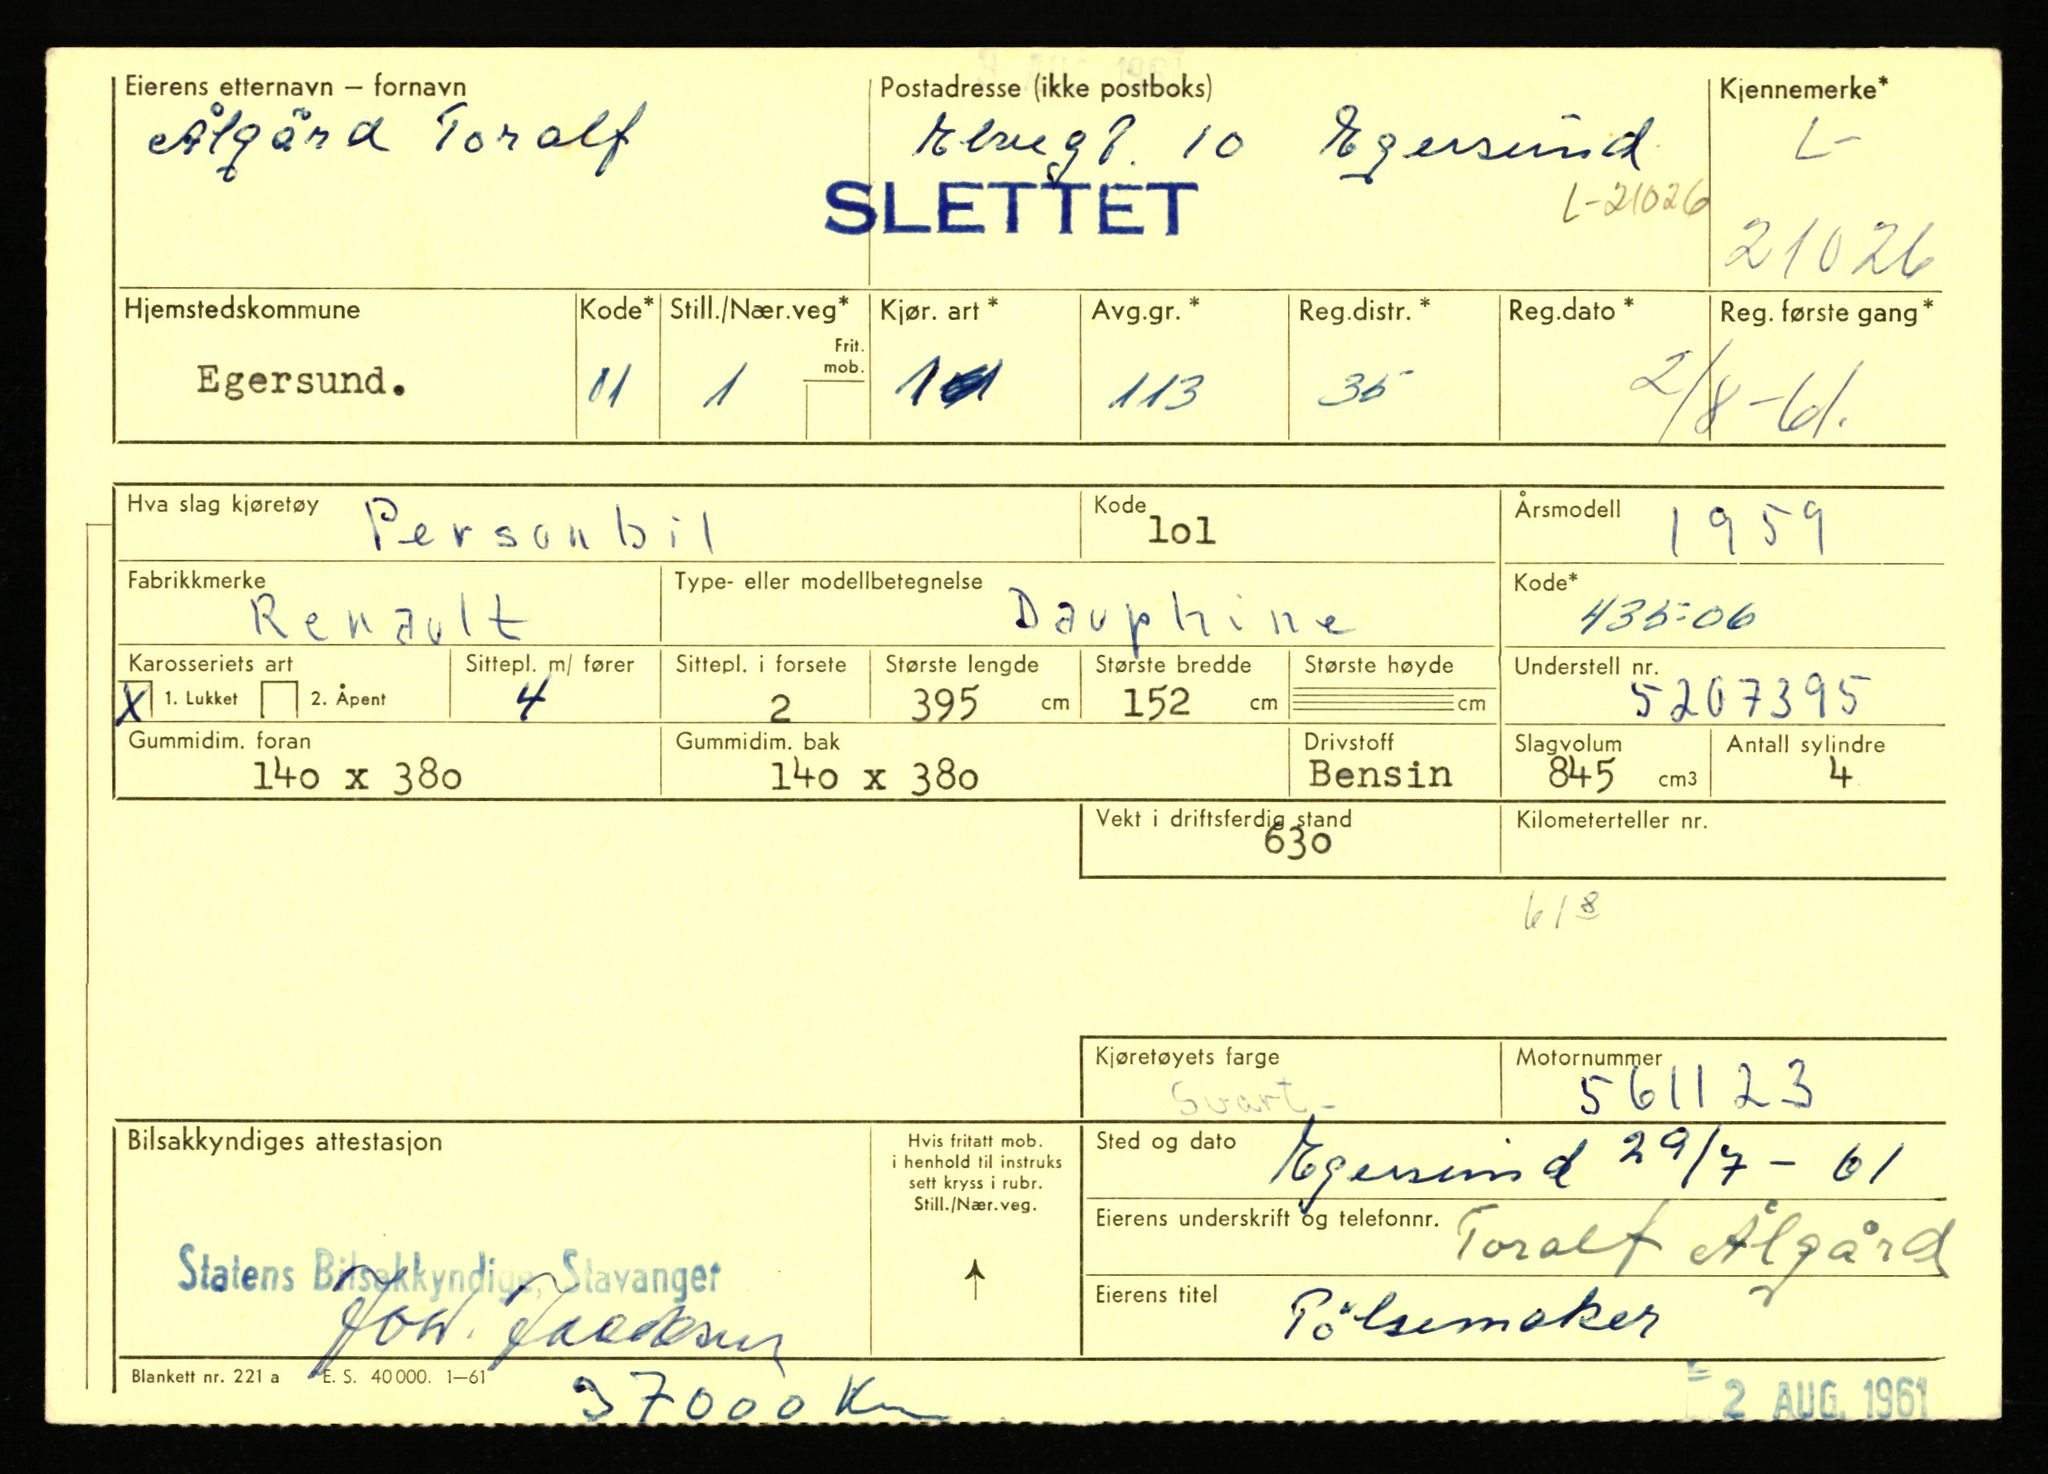 Eierens etternavn – fornavn
Ålgård Toralf
Postadresse (ikke postboks)
Elvegt. 10 Egersund
Kjennemerke*
L-
21026
L-21026
SLETTET
Hjemstedskommune
Egersund.
Kode*
11
Still./Nær.veg*
1
Frit.
mob.
Kjør. art*
1
Avg.gr.*
113
Reg.distr.*
35
Reg.dato*
Reg. første gang*
2/8-61.
Hva slag kjøretøy
Personbil
Kode
lol
Årsmodell
1959
Fabrikkmerke
Renault
Type- eller modellbetegnelse
Dauphine
Kode*
435-06
Karosseriets art
X 1. Lukket 2. Åpent
Sittepl. m/ fører
4
Sittepl. i forsete
2
Største lengde
395 cm
Største bredde
152 cm
Største høyde
cm
Understell nr.
5207395
Gummidim. foran
140 x 380
Gummidim. bak
140 x 380
Drivstoff
Bensin
Slagvolum
845 cm3
Antall sylindre
4
Vekt i driftsferdig stand
630
Kilometerteller nr.
61 8
Kjøretøyets farge
Svart-
Motornummer
561123
Bilsakkyndiges attestasjon
Statens Bilsakkyndige, Stavanger
Hvis fritatt mob.
i henhold til instruks
sett kryss i rubr.
Still./Nær.veg.
Sted og dato
Egersund 29/7 - 61
Eierens underskrift og telefonnr.
Toralf Ålgård
Eierens titel
Pölsemaker
Blankett nr. 221 a E. S. 40 000. 1–61
37000 Km
2 AUG. 1961